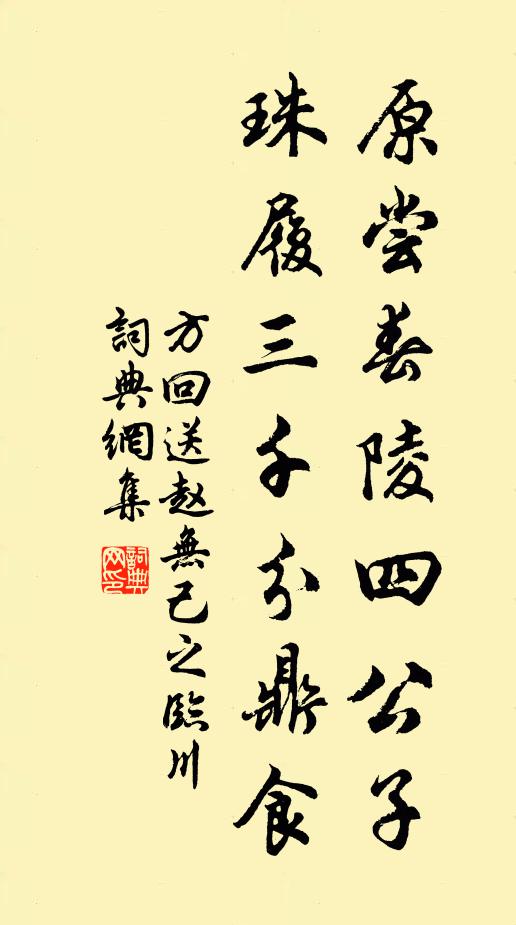 原尝春陵四公子
珠履三千分鼎食
方回送赵無己之臨川
詞典網集
詞典網印